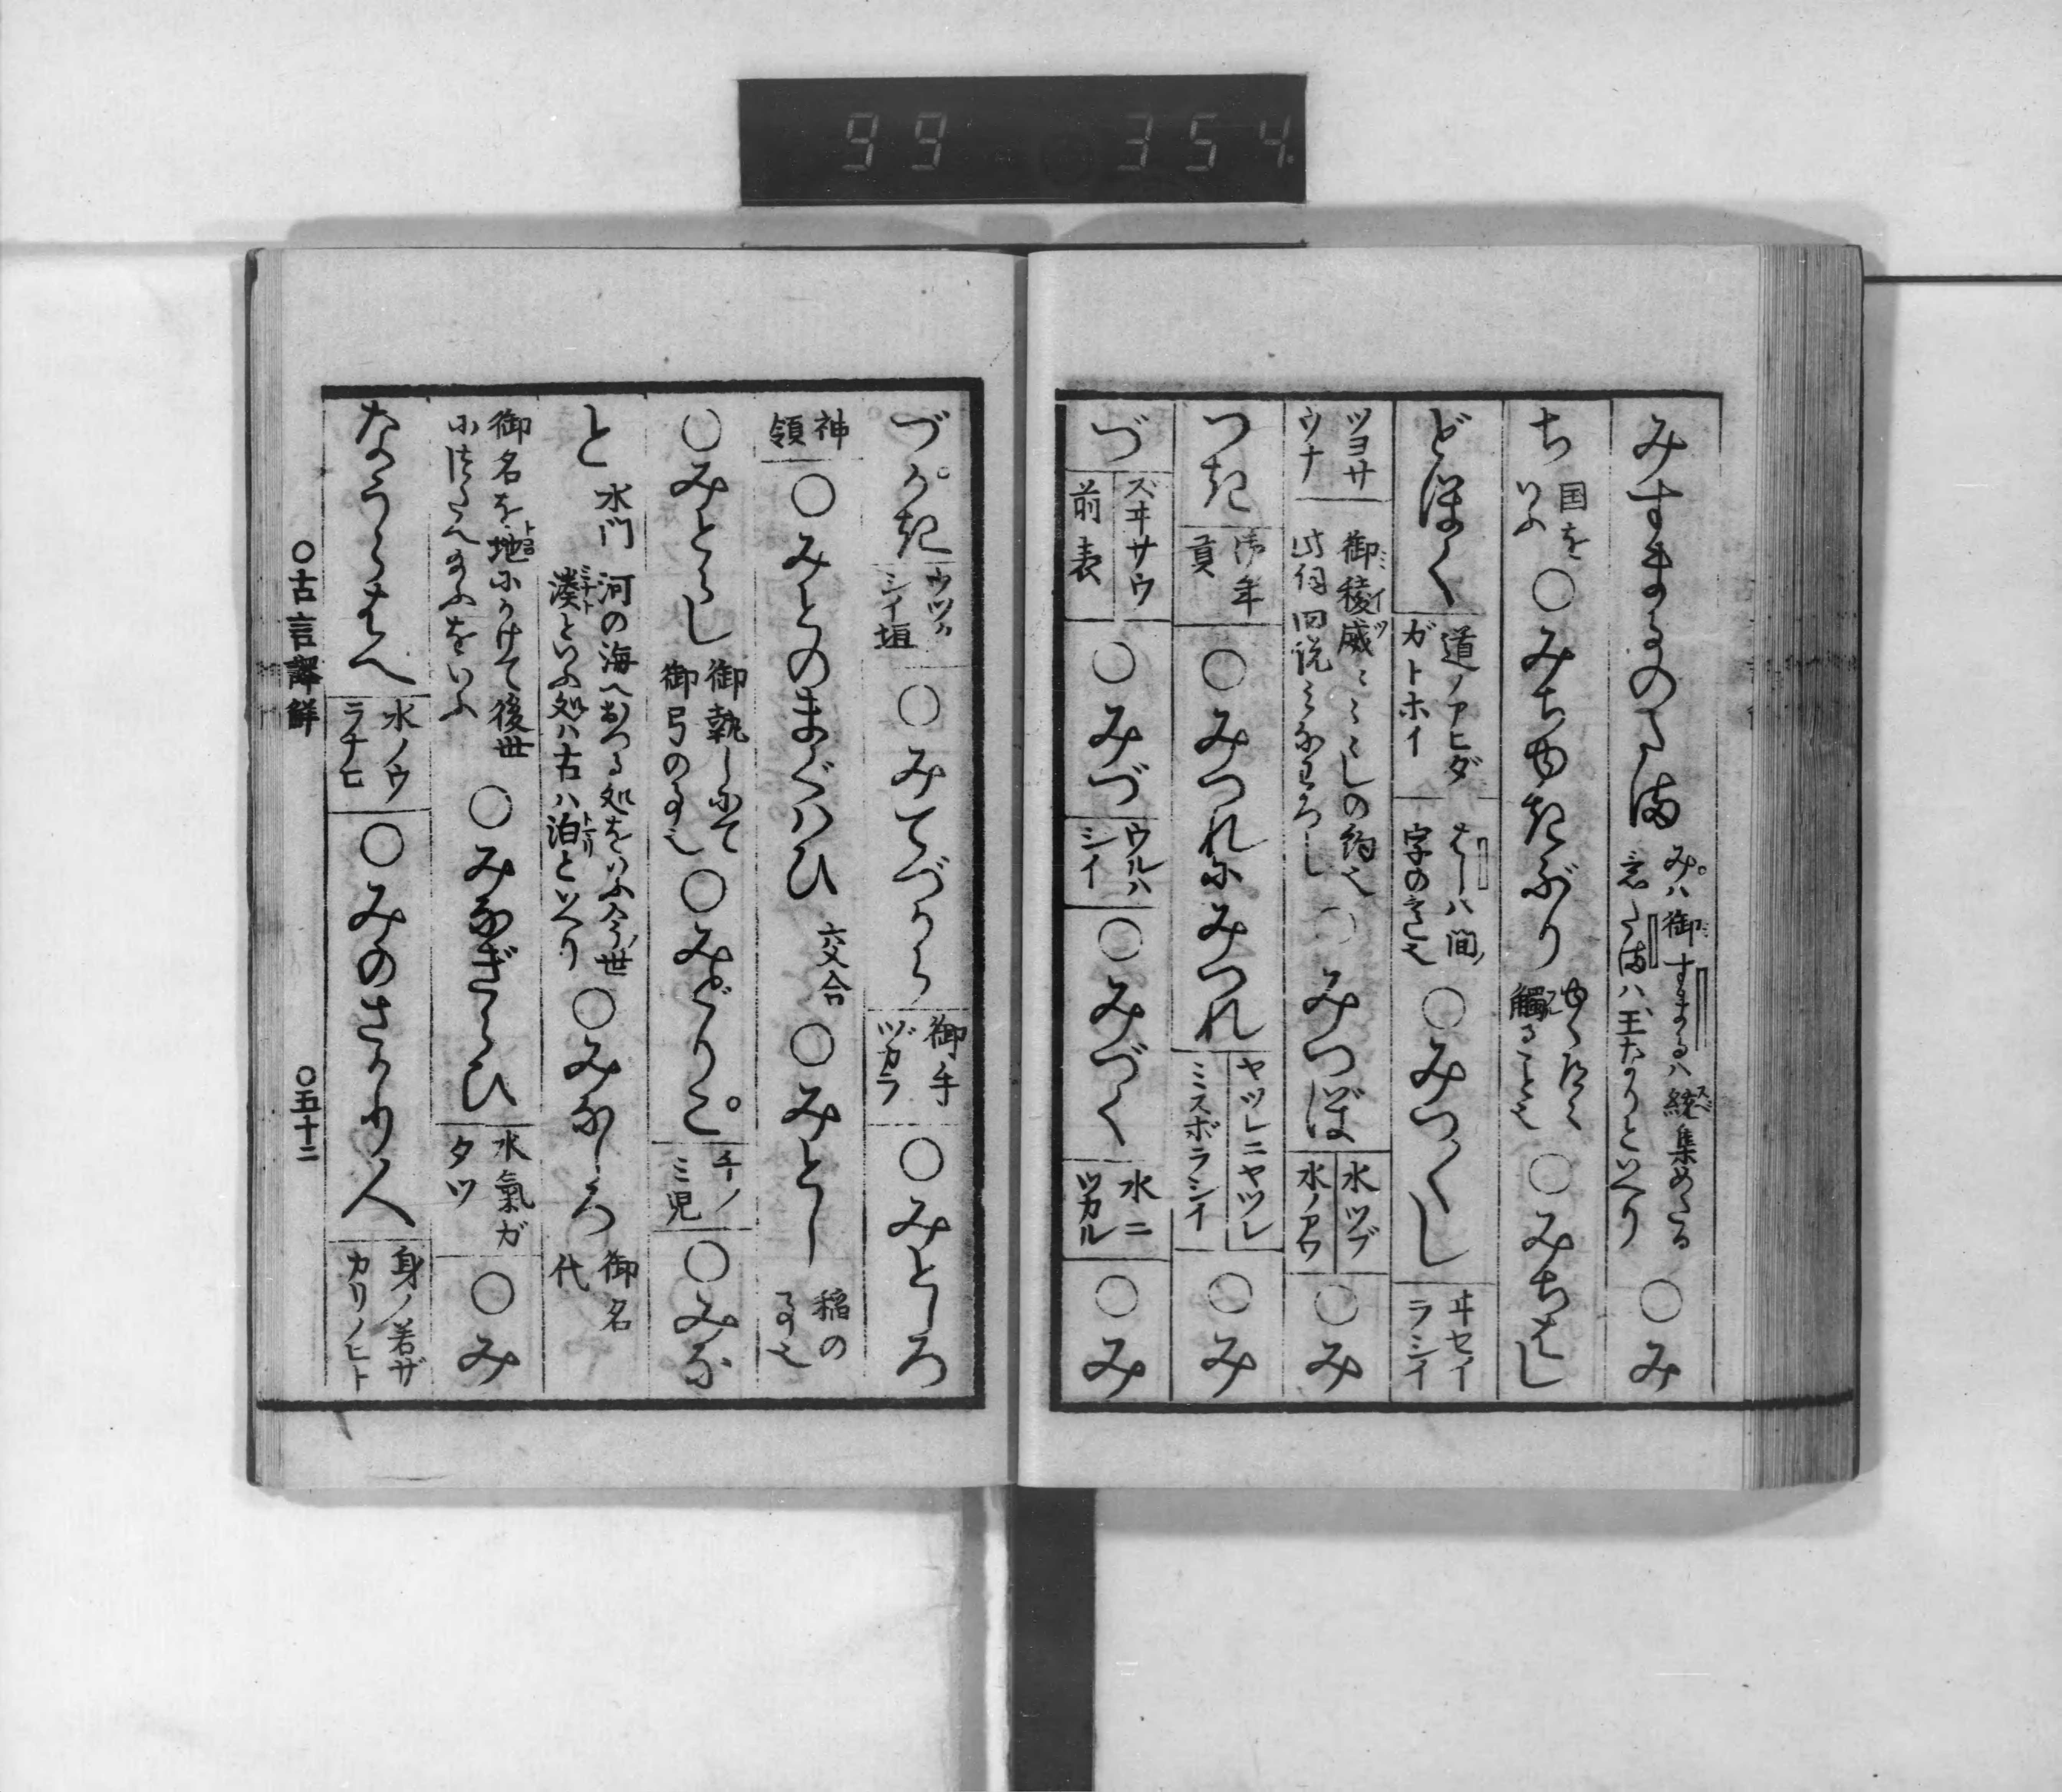 99 354
みすまるのたま みハ御すまるハ統集めたる
意たまハ玉なりといへり ○み
ち 国を
いふ ○みちゆきぶり ゆくたく
觸ることを ○みちはし
どほく 道ノアヒダ
ガトホイ はしハ間ノ
字の意也 ○みつくし ヰセイ
ラシイ
ツヨサ
ウナ 御稜威ミミミしの約也
此何回説ミ ろし ○みつぼ 水ツブ
水ノアワ ○み
つき 御年
貢 ○みつれにみつれ ヤツレニヤツレ
ミスボラシイ ○み
づ ズヰサウ
前表 ○みづ ウルハ
シイ ○みづく 水ニ
ツカル ○み
づがき ウツク
シイ垣 ○みてづから 御手
ヅカラ ○みとしろ
神
領 ○みとのまぐハひ 交合 ○みとし 稲の
事也
○みとらし 御執しにて
御弓の事也 ○みどりこ チノ
ミ児 ○みな
と 水門 河の海へおつる処をいふ今ノ世
湊といふ処ハ古ハ泊といへり ○みなしろ 御名
代
御名を地にかけて後世
につたへ給ふをいふ ○みなぎらひ 水氣ガ
タツ ○み
なうらはへ 水ノウ
ラナヒ ○みのさかり人 身ノ若ザ
カリノヒト
○古言譯鮮 ○五十二